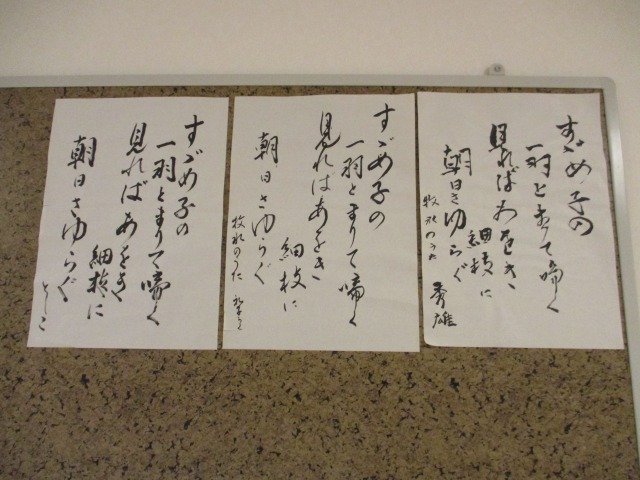 すゞめ子の
一羽とまりて啼く
見ればあをき
細枝に
朝日さゆらぐ
牧水のうた
秀雄
すゞめ子の
一羽とまりて啼く
見ればあをき
細枝に
朝日さゆらぐ
牧水のうた
すゞめ子の
一羽とまりて啼く
見ればあをき
細枝に
朝日さゆらぐ
としこ